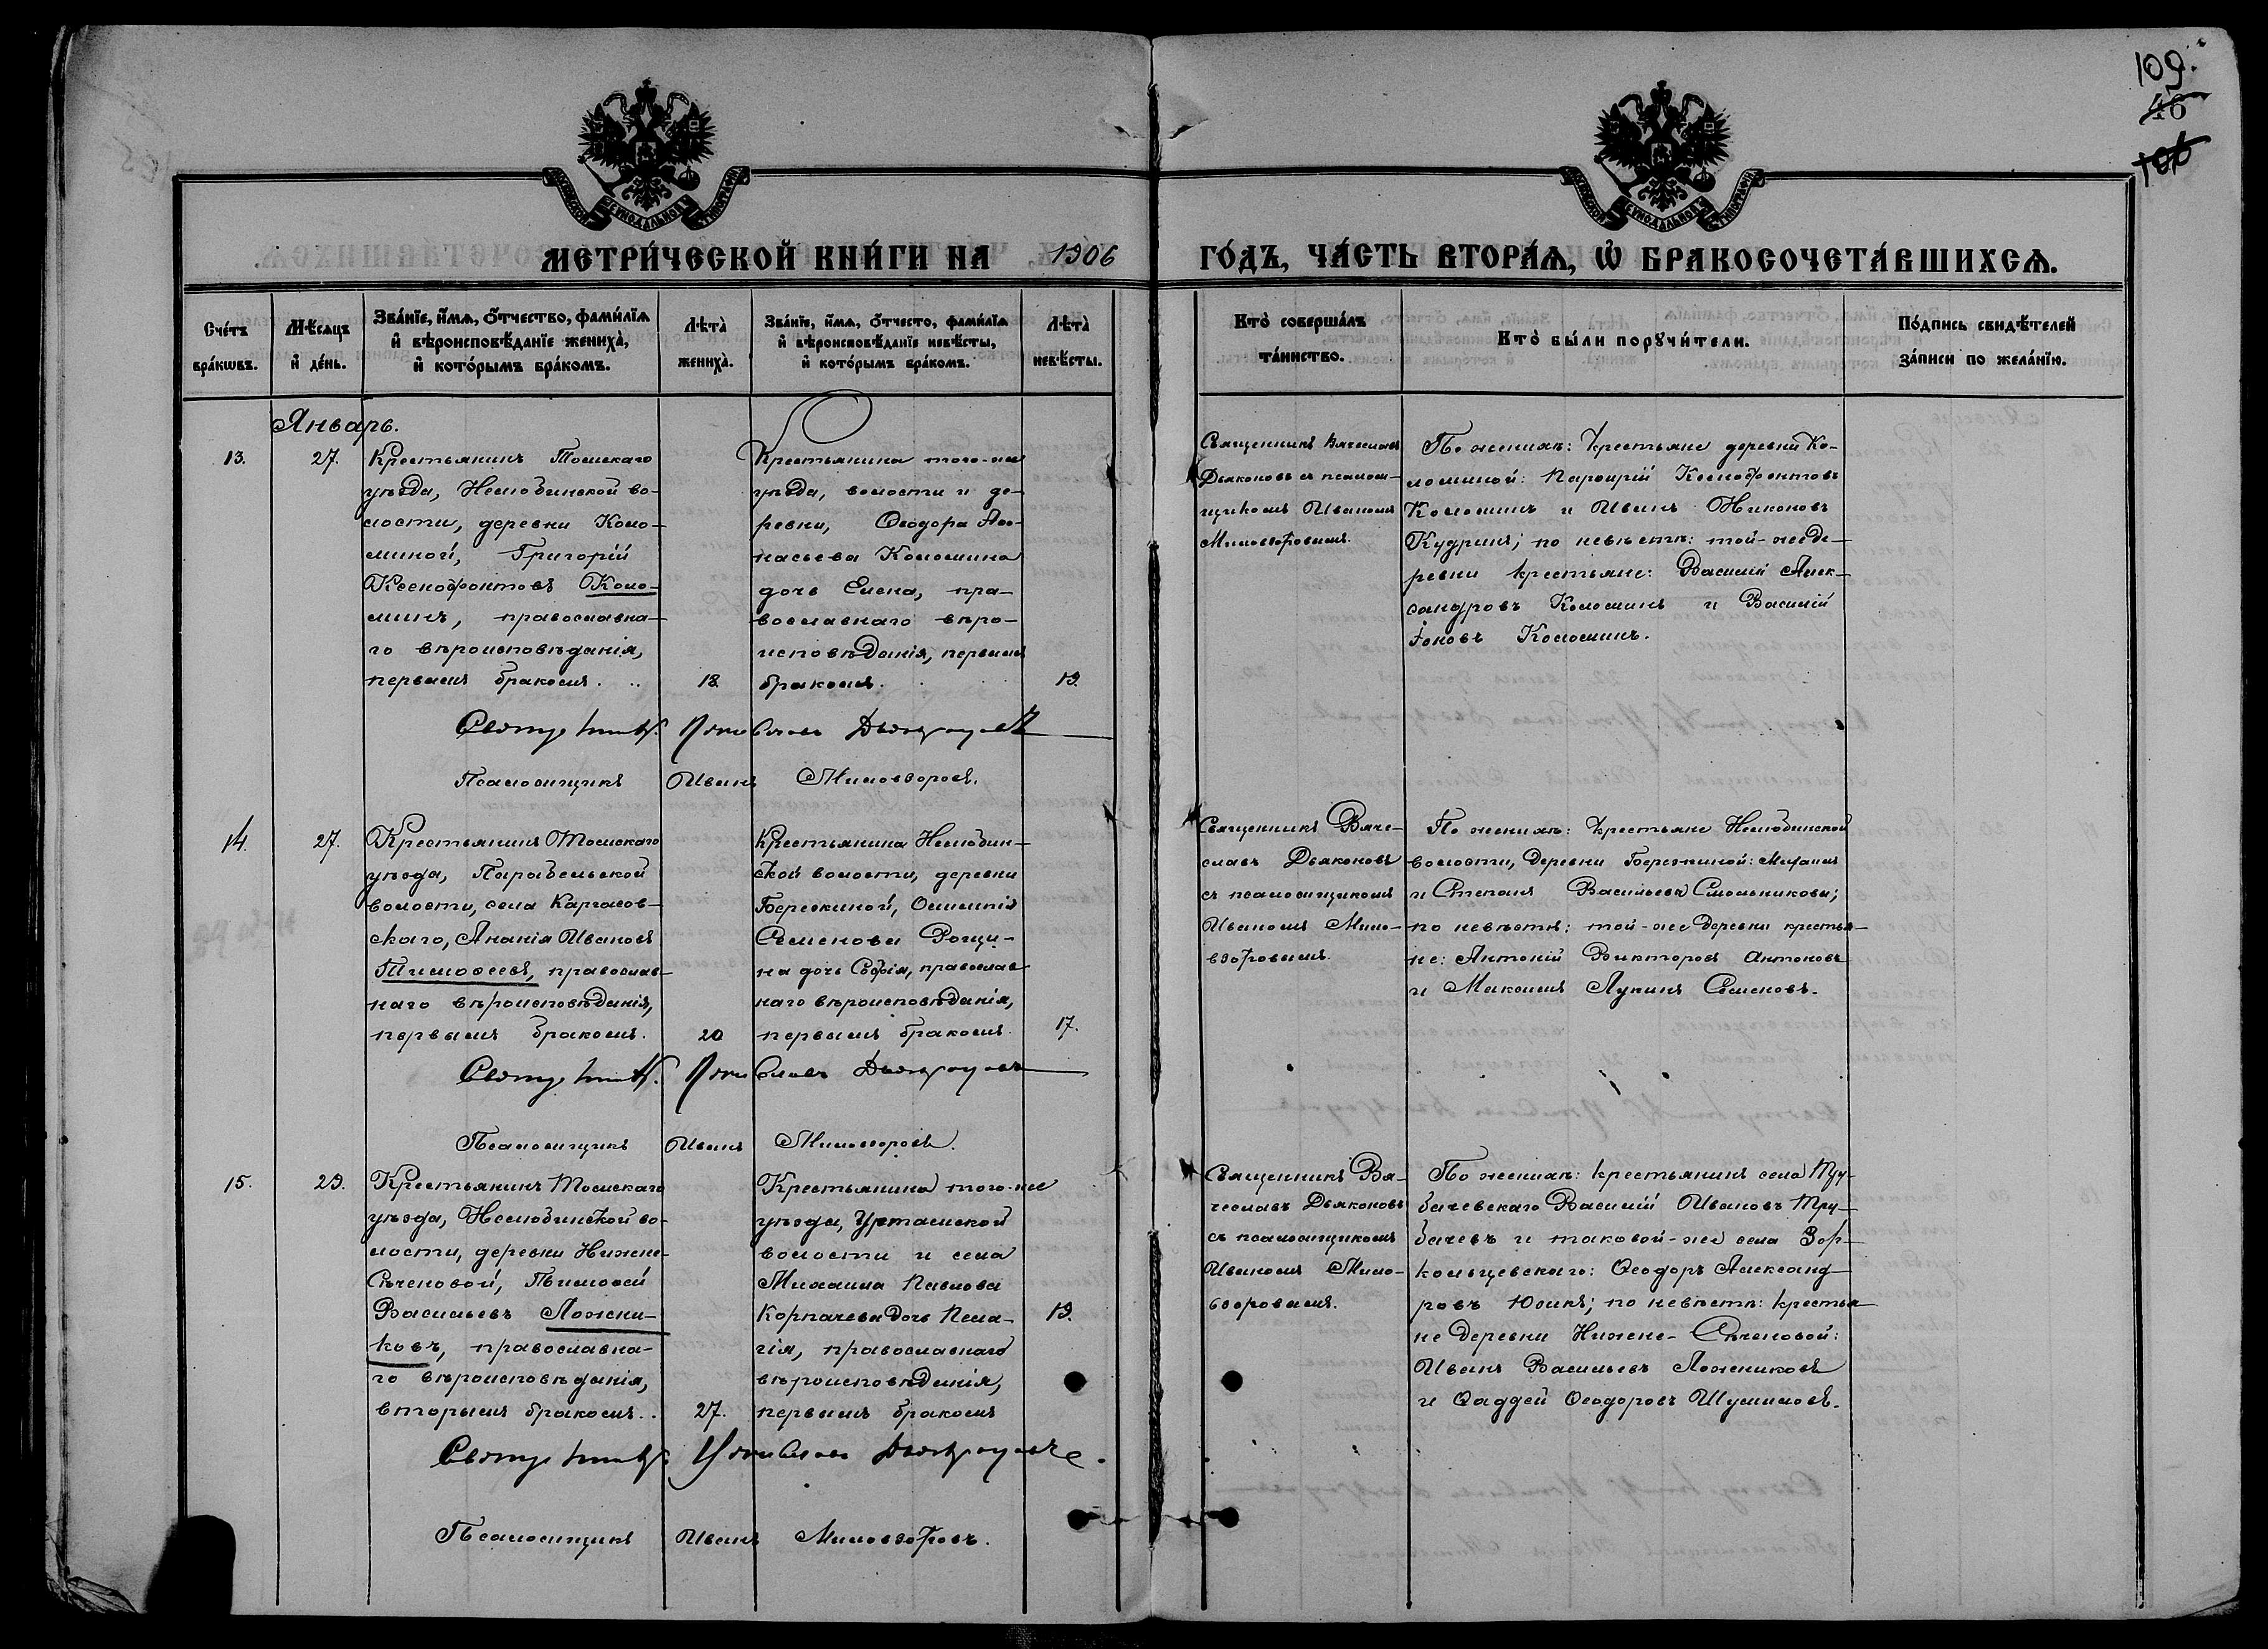 109.
46
106
МЕТРИ́ЧЕСКОЙ КНИ́ГИ НА 1906 ГО́ДЪ, ЧА́СТЬ ВТОРА́Ѧ, Ѡ҆ БРАКОСОЧЕТА́ВШИХСѦ.
Сче́тъ
бра́кѡвъ.
Мѣ́сѧцъ
и҆ де́нь.
Зва́нїе, и҆́мѧ, ѻ҆́тчество, фами́лїѧ
и҆ вѣроисповѣ́данїе жениха̀,
и҆ кото́рымъ бра́комъ.
Лѣта̀
жениха̀.
Зва́нїе, и҆́мѧ, ѻ҆́тчесто, фами́лїѧ
и҆ вѣроисповѣ́данїе невѣ́сты,
и҆ кото́рымъ бра́комъ.
Лѣта̀
невѣ́сты.
Кто̀ соверша́лъ
та́инство.
Кто̀ бы́ли порꙋчи́тели.
По́дпись свидѣ́телей
за́писи по жела́нїю.
Январь.
13.
27.
Крестьянинъ Томскаго
уѣзда, Нелюбинской во-
лости, деревни Коло-
миной, Григорій
Ксенофонтовъ Коло-
минъ, православна-
го вѣроисповѣданія,
первымъ бракомъ.
18.
Крестьянина того-же
уѣзда, волости и де-
ревни, Ѳеодора Аѳа-
насьева Коломина
дочь Елена, пра-
вославнаго вѣро-
исповѣданія, первымъ
бракомъ.
19.
Священникъ Вячеславъ
Дьяконовъ съ псалом-
щикомъ Иваномъ
Миловзоровымъ.
По женихѣ: крестьяне деревни Ко-
ломиной: Парфирій Ксенофонтовъ
Коломинъ и Иванъ Никоновъ
Кудринъ; по невѣстѣ: той-же де-
ревни крестьяне: Василій Алек-
сандровъ Коломинъ и Василій
Іоновъ Коломинъ.
Священникъ Вячеславъ Дьяконовъ
Псаломщикъ Иванъ Миловзоровъ.
14.
27.
Крестьянинъ Томскаго
уѣзда, Парабельской
волости, села Каргасок-
скаго, Ананія Ивановъ
Тимоѳеевъ, православ-
наго вѣроисповѣданія,
первымъ бракомъ.
20
Крестьянина Нелюбин-
ской волости, деревни
Березкиной,
Семенова Рощи-
на дочь Софія, православ-
наго вѣроисповѣданія,
первымъ бракомъ.
17.
Священникъ Вяче-
славъ Дьяконовъ
съ псаломщикомъ
Иваномъ Мило-
взоровымъ.
По женихѣ: крестьяне Нелюбинской
волости, деревни Березкиной: Михаилъ
и Степанъ Васильевы Смольниковы;
по невѣстѣ: той-же деревни крестья-
не: Антоній Викторовъ Антоновъ
и Максимъ Лукинъ Семеновъ.
Священникъ Вячеславъ Дьяконовъ
Псаломщикъ Иванъ Миловзоровъ.
15.
29.
Крестьянинъ Томскаго
уѣзда, Нелюбинской во-
лости, деревни Нижне-
Сѣченовой, Тимоѳей
Васильевъ Ложни-
ковъ, православна-
го вѣроисповѣданія,
вторымъ бракомъ..
27.
Крестьянина того-же
уѣзда, Уртамской
волости и села
Михаила Павлова
Корпачева дочь Пела-
гія, православнаго
вѣроисповѣданія,
первымъ бракомъ
19.
Священникъ Вя-
чеславъ Дьяконовъ
съ псаломщикомъ
Иваномъ Мило-
взоровымъ.
По женихѣ: крестьянинъ села Тру-
бачевскаго Василій Ивановъ Тру-
бачевъ и таковой-же села Зор-
кольцевскаго: Ѳеодоръ Александ-
ровъ Юдинъ; по невѣстѣ: крестья-
не деревни Нижне-Сѣченовой:
Иванъ Васильевъ Ложниковъ
и Ѳаддей Ѳеодоровъ Шумиловъ.
Священникъ Вячеславъ Дьяконовъ.
Псаломщикъ Иванъ Миловзоровъ.